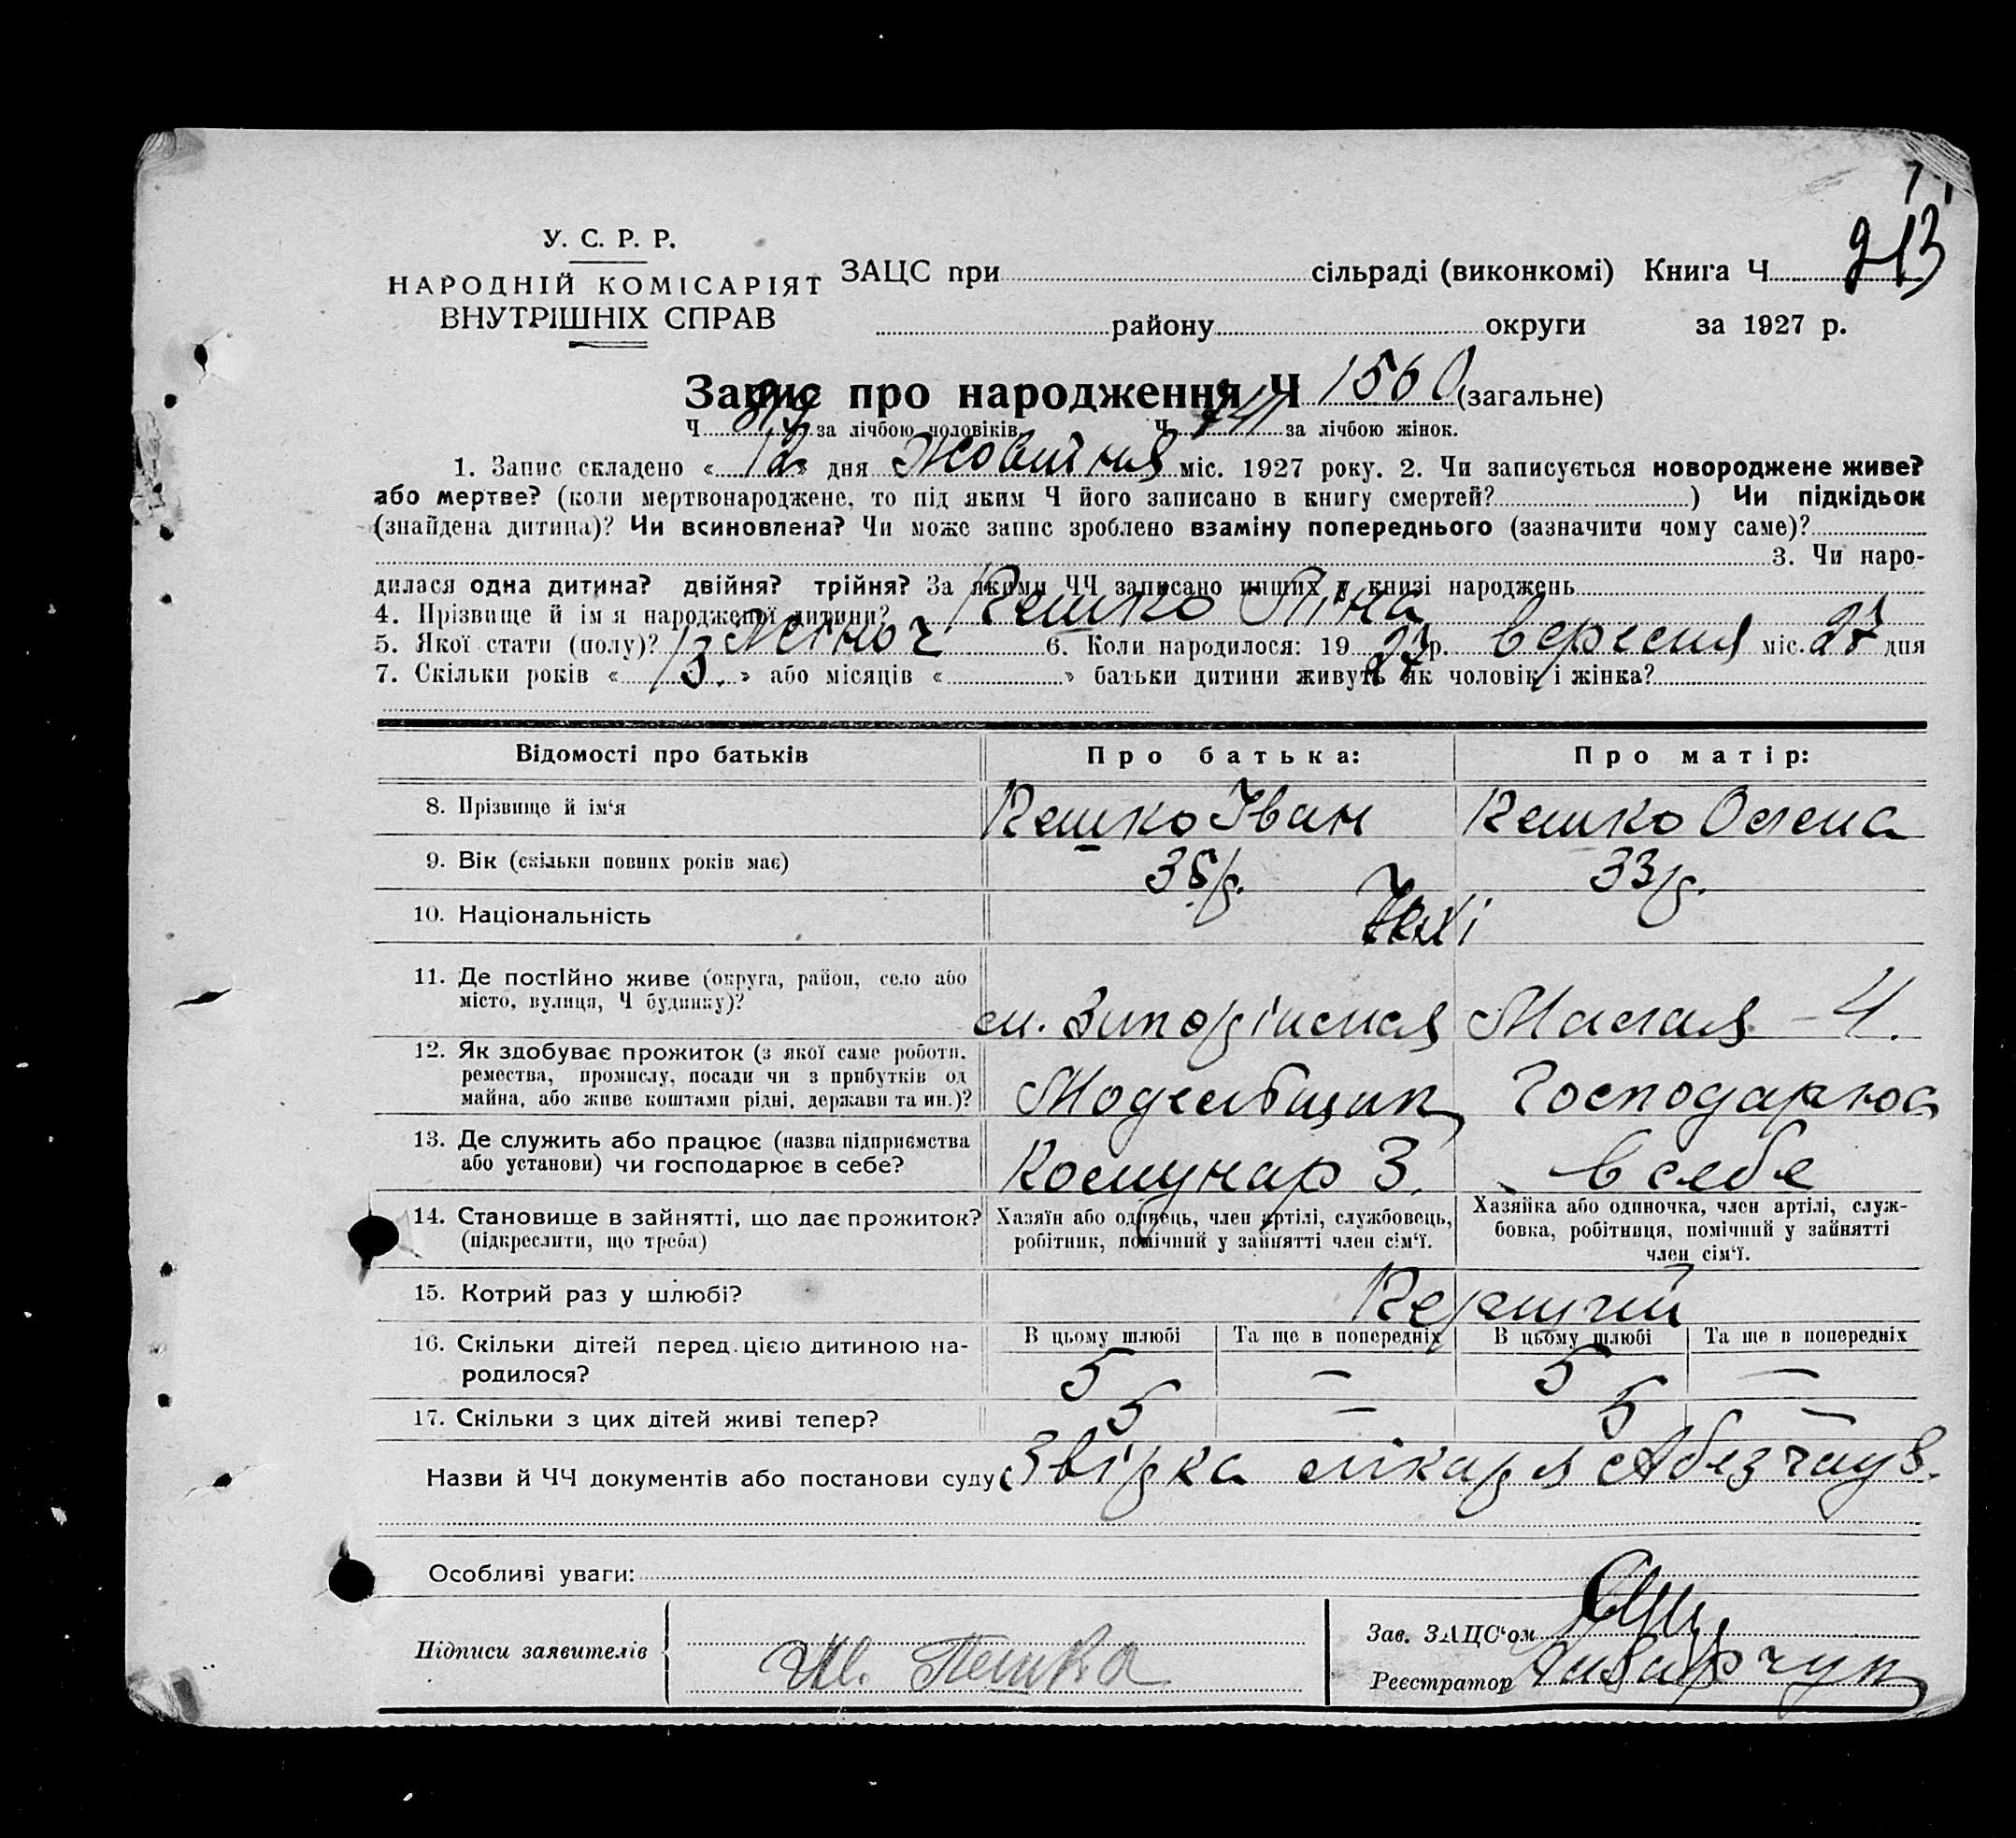 У. С. Р. Р.
НАРОДНІЙ КОМІСАРІЯТ
ВНУТРІШНІХ СПРАВ
213
ЗАЦС при сільраді (виконкомі) Книга Ч
району округи за 1927 р.
Запис про народження Ч 1560 (загальне)
Ч за лічбою чоловіків Ч за лічбою жінок.
1. Запис складено « 12 » дня Жовтня міс. 1927 року. 2. Чи записується новороджене живе?
або мертве? (коли мертвонароджене, то під яким Ч його записано в книгу смертей? ) Чи підкідьок
(знайдена дитина)? Чи всиновлена? Чи може запис зроблено взаміну попереднього (зазначити чому саме)?
3. Чи наро-
дилася одна дитина? двійня? трійня? За якими ЧЧ записано инших в книзі народжень
4. Прізвище й ім я народженої дитини? Пешко Ніна
5. Якої стати (полу)? Жіноч 6. Коли народилося: 19 27 р. вересня міс. 27 дня
7. Скільки років « 13. » або місяців « » батьки дитини живуть як чоловік і жінка?
Відомості про батьків Про батька: Про матір:
8. Прізвище й ім‘я Пешко Іван Пешко Олена
9. Вік (скільки повних років має) 35 р. 33 р.
10. Національність
11. Де постійно живе (округа, район, село або
місто, вулиця, Ч будинку)? Малая - 4.
12. Як здобуває прожиток (з якої саме роботи,
ремества, промислу, посади чи з прибутків од
майна, або живе коштами рідні, держави та ин.)? Модельщик Господарює
13. Де служить або працює (назва підприємства
або установи) чи господарює в себе? Комунар З. в себе
14. Становище в зайнятті, що дає прожиток?
(підкреслити, що треба)
Хазяїн або одинець, член артілі, службовець,
робітник, помічний у зайнятті член сім‘ї.
Хазяйка або одиночка, член артілі, служ-
бовка, робітниця, помічний у зайнятті
член сім‘ї.
15. Котрий раз у шлюбі? Перший
16. Скільки дітей перед цією дитиною на-
родилося?
В цьому шлюбі Та ще в попередніх В цьому шлюбі Та ще в попередніх
5 — 5 —
17. Скільки з цих дітей живі тепер? 5 — 5 —
Назви й ЧЧ документів або постанови суду Звірка лікаря
Особливі уваги:
Підписи заявителів Пешка
Зав. ЗАЦС‘ом
Реєстратор